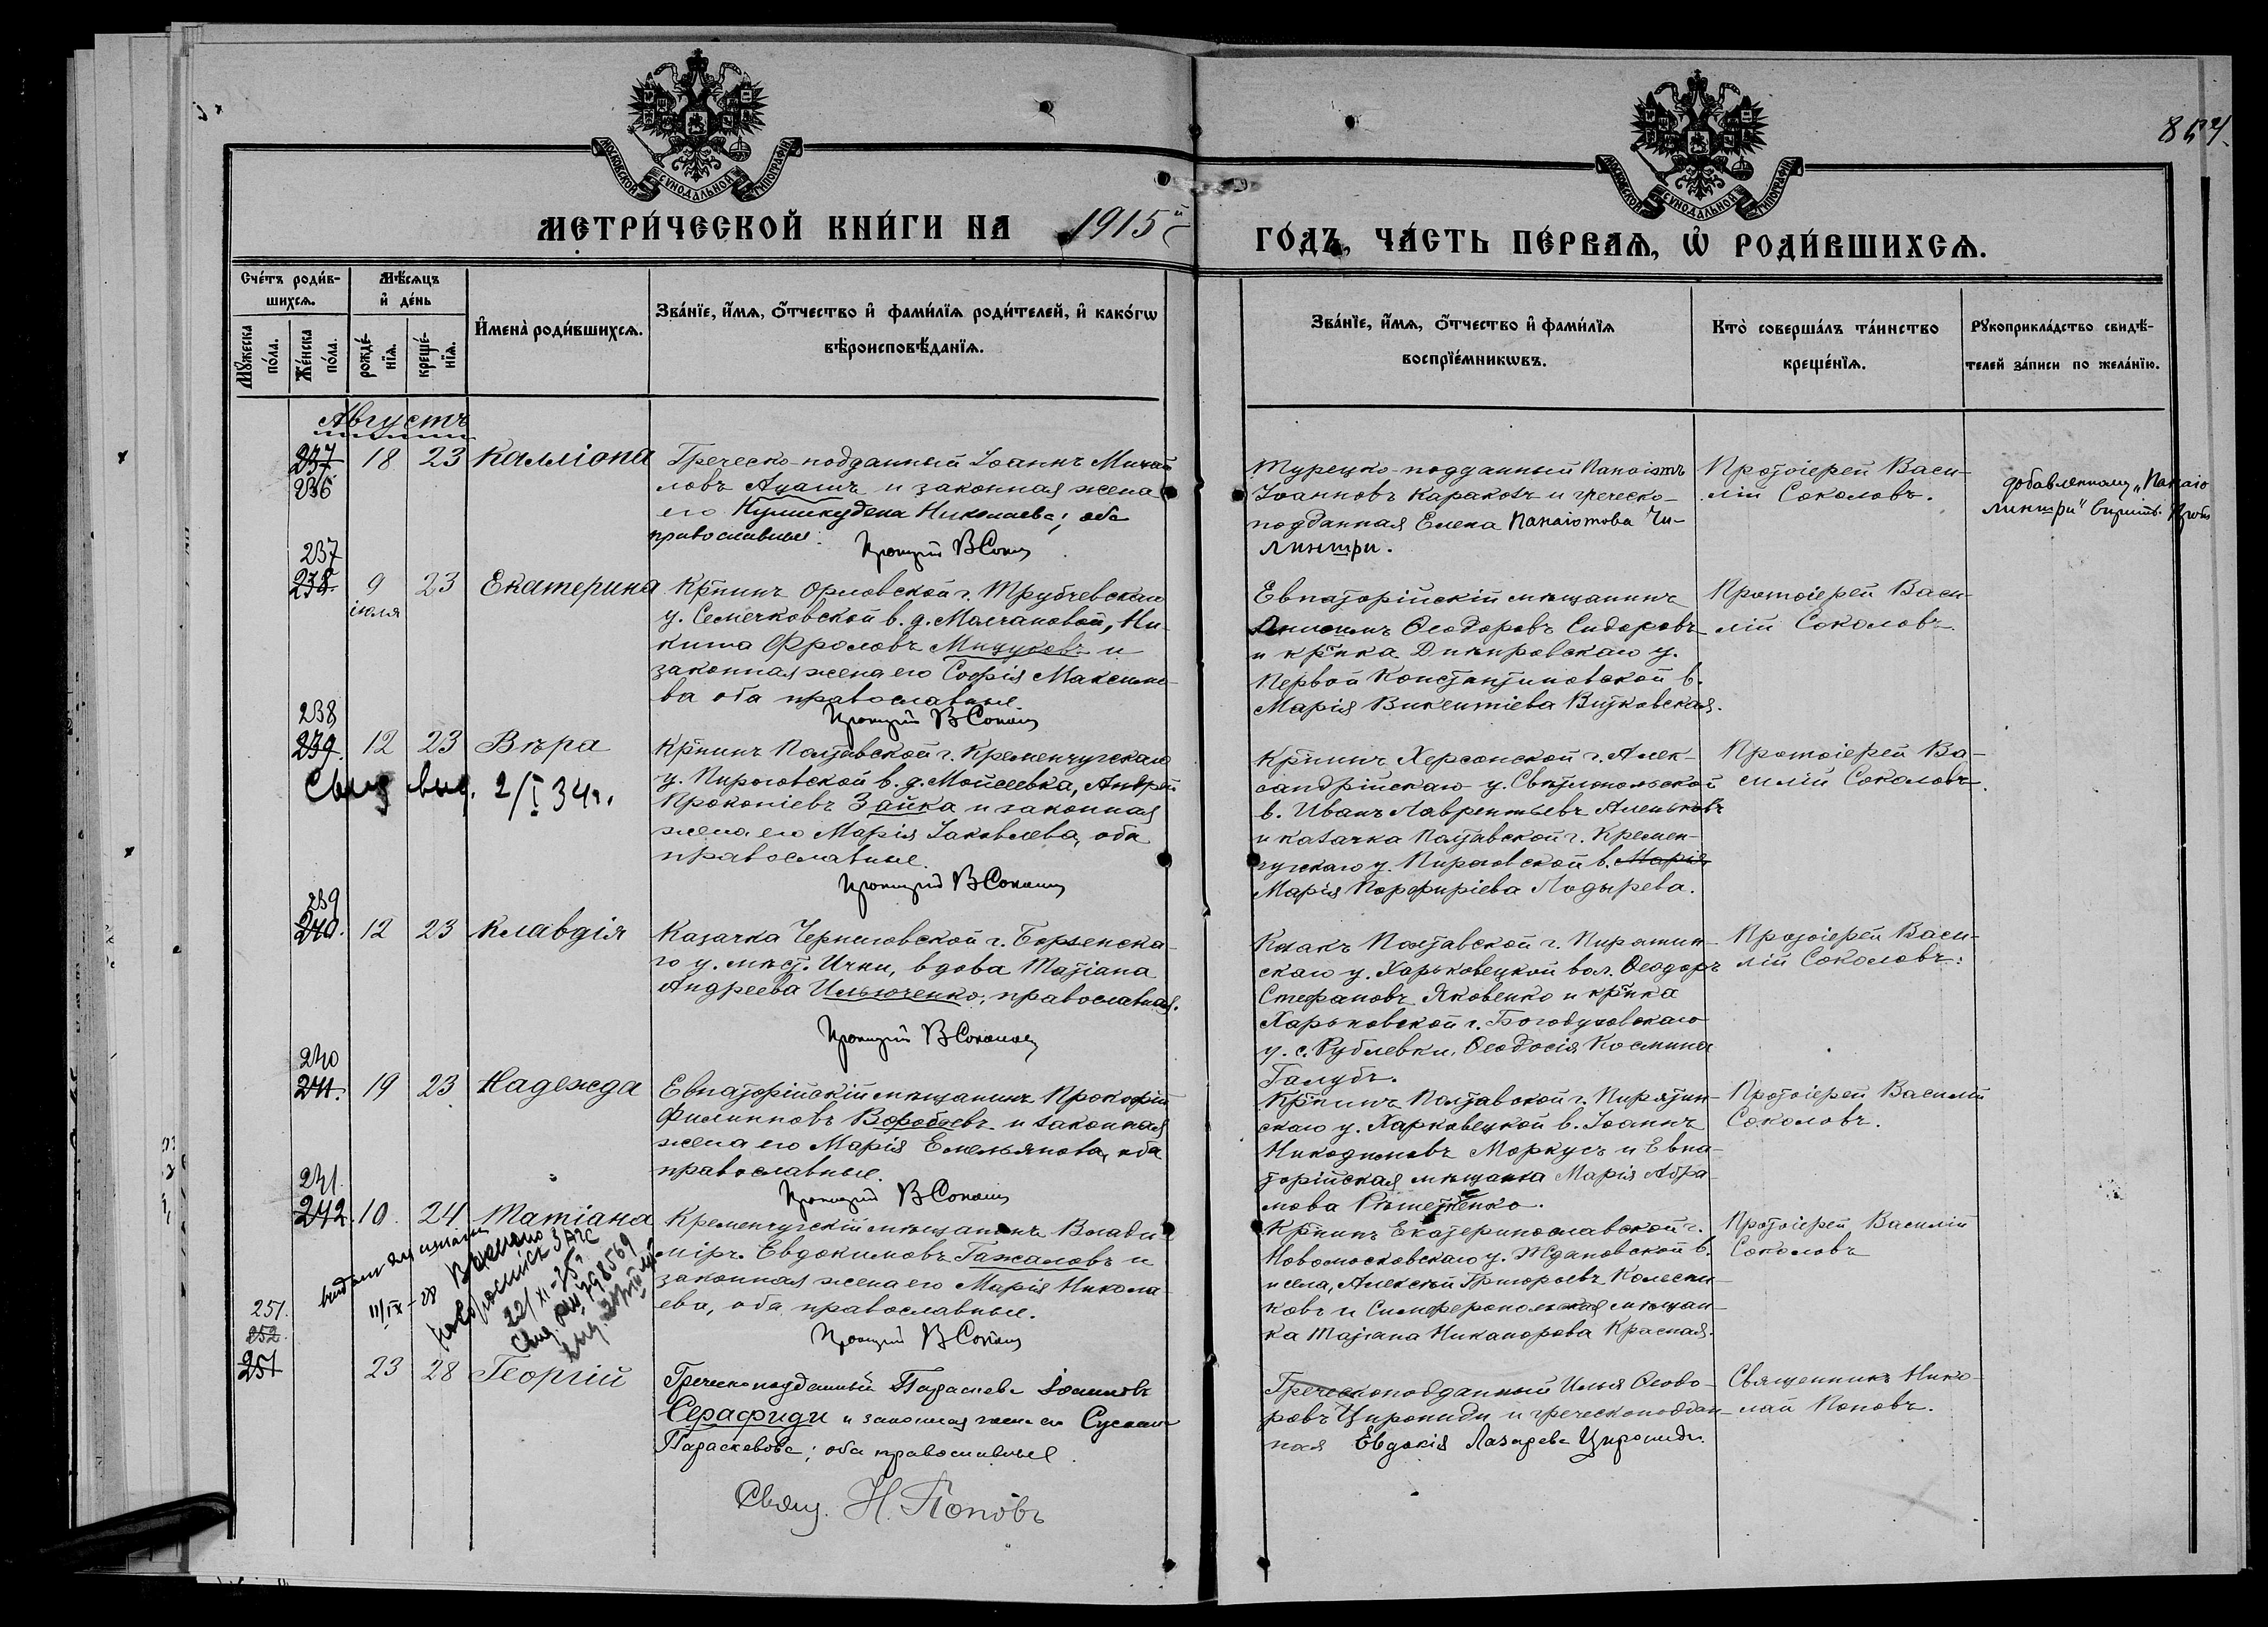 854
МОСКОВСКОЙ СѴНОДАЛЬНОЙ ТИПОГРАФІИ
МОСКОВСКОЙ СѴНОДАЛЬНОЙ ТИПОГРАФІИ
МЕТРИ́ЧЕСКОЙ КНИ́ГИ НА 1915й
ГО́ДЪ, ЧА́СТЬ ПЕ́РВАѦ, Ѡ҆ РОДИ́ВШИХСѦ.
Сче́тъ роди́в-
шихсѧ.
Мꙋ́жеска по́ла.
Же́нска по́ла.
Мѣ́сѧцъ
и҆ де́нь
рожде́-
нїѧ.
креще́-
нїѧ.
И҆мена̀ роди́вшихсѧ.
Зва́нїе, и҆́мѧ, ѻ҆́тчество и҆ фами́лїѧ роди́телей, и҆ како́гѡ
вѣроисповѣ́данїѧ.
Зва́нїе, и҆́мѧ, ѻ҆́тчество и҆ фами́лїѧ
воспрїе́мникѡвъ.
Кто̀ соверша́лъ та́инство
креще́нїѧ.
Рꙋкоприкла́дство свидѣ́-
телей за́писи по жела́нїю.
Августъ
237
236
18 23 Калліопа
Греческо-подданный Іоаннъ Михай
ловъ и законная жена
его Николаева; оба
православные.
Турецко-подданный Панаіотъ
Іоанновъ Караковъ и греческо-
подданная Елена Панаіотова Чи-
линтри.
Протоіерей Васи-
лій Соколовъ.
добавленному „Панаіо
линтри" вѣрить.
237
238
9 23 Екатерина
іюля
Кр̃нинъ Орловской г. Трубчевскаго
у. Семечковской в. д. Молчановой, Ни-
кита Фроловъ Мицуковъ и
законная жена его Софія Максимо-
ва оба православные.
Евпаторійскій мѣщанинъ
Ѳеодоровъ Сидоровъ
и кр̃нка Днѣпровскаго у.
Первой Константиновской в.
Марія Викентіева Витковская.
Протоіерей Васи-
лій Соколовъ
238
239. 12 23 Вѣра
Свид выд. 2/I 34г.
Кр̃нинъ Полтавской г. Кременчугскаго
у. Пироговской в. д. Мойсеевка, Андрей
Прокопіевъ Зайка и законная
жена его Марія Іаковлева, оба
православные.
Кр̃нинъ Херсонской г. Алек-
сандрійскаго у. Свѣтлопольской
в. Иванъ Лаврентьевъ Аленьковъ
и казачка Полтавской г. Кремен-
чугскаго у. Пироговской в. Марія
Марія Порфиріева Лодырева.
Протоіерей Ва-
силій Соколовъ.
239
240. 12 23 Клавдія
Казачка Черниговской г. Борзенска-
го у. мѣст. Ични, вдова Татіана
Андреева Ильюченко, православная.
Казакъ Полтавской г. Пирятин-
скаго у. Харьковецкой вол. Ѳеодоръ
Стефановъ Яковенко и кр̃нка
Харьковской г. Богодуховскаго
у. с. Рублевки, Ѳеодосія Космина
Галубъ.
Протоіерей Васи-
лій Соколовъ.
240
241. 19 23 Надежда
Евпаторійскій мѣщанинъ Прокофій
Филипповъ Воробьевъ и законная
жена его Марія Емельянова, оба
православные.
Кр̃нинъ Полтавской г. Пирятин-
скаго у. Харковецкой в. Іоаннъ
Никодимовъ Моркусъ и Евпа-
торійская мѣщанка Марія Абра-
мова Рѣшетченко.
Протоіерей Василій
Соколовъ.
241
242. 10. 24 Татіана
11/IX-28
22/XI-25г
Кременчугскій мѣщанинъ Влади-
міръ Евдокимовъ Гажаловъ и
законная жена его Марія Никола-
ева, оба православные.
Кр̃нинъ Екатеринославской г.
Новомосковскаго у. Ждановской в.
и села, Алексѣй Григорьевъ Колесни-
ковъ и Симферопольская мѣщан-
ка Татіана Никанорова Красная.
Протоіерей Василій
Соколовъ
251.
252.
251
23 28 Георгій
Греческоподданный Параскева Іоанновъ
Серафиди и законная жена его Сусанна
Параскевова; оба православные.
Свящ. Н. Поповъ
Греческоподданный Илья Ѳеодо-
ровъ Циропиди и греческоподдан-
ная Евдокія Лазарева Циропиди.
Священникъ Нико-
лай Поповъ.